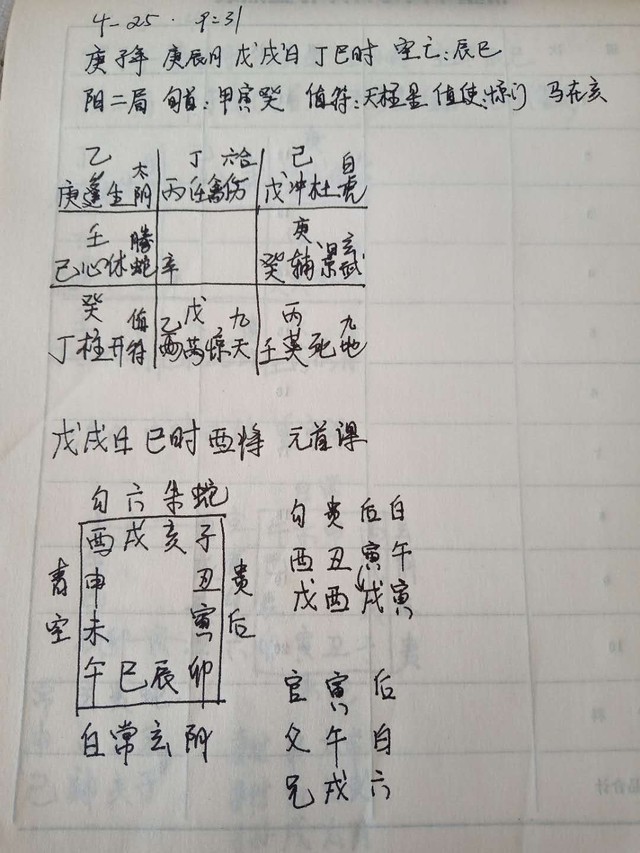 4-25. 9:31
庚子年 庚辰月 戊戌日 丁巳时 空亡:辰巳
阳二局 旬首:甲寅癸 值符:天柱星 值使:惊门 马在亥
乙 太 丁 六合 己 白
庚蓬生 阴 丙任禽伤 戊冲杜 虎
壬 腾 庚 玄
己心休 蛇 辛 癸辅景 武
癸 值 乙 戊 九 丙 九
丁柱开 符 芮惊 天 壬英死 地
戊戌日 巳时 酉将 元首课
勾六朱蛇
酉戌亥子
青 申 丑 贵
空 未 寅 后
午巳辰卯
白常玄阴
勾贵后白
酉丑寅午
戊酉戌寅
官 寅 后
父 午 白
兄 戌 六